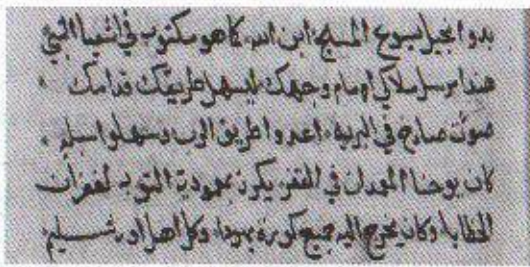 بدو انجيل يسوع المسيح ابن الله كما هو مكتوب في اشعيا النبي
هنذا مرسل ملاكي امام وجهك ليسهل طريقك قدامك
صوت صارخ في البريه اعدوا طريق الرب وسهلوا سبله
كان يوحنا المعمدان في القفر يكرز بمعمودية التوبه لغفران
الخطايا وكان يخرج اليه جميع كورة يهودا وكل اهل اورشليم